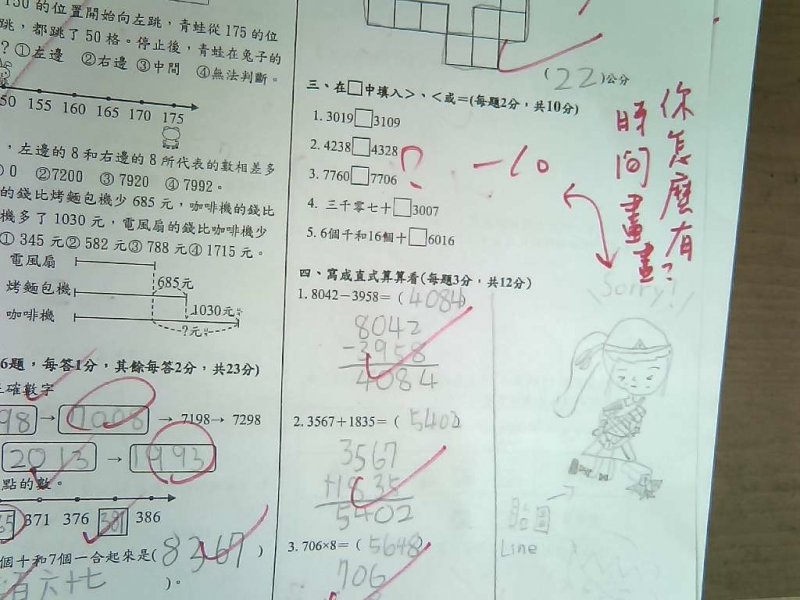 150的位置開始向左跳，青蛙從175的位
跳，都跳了50格。停止後，青蛙在兔子的
？①左邊 ②右邊 ③中間 ④無法判斷。
50 155 160 165 170 175
，左邊的8和右邊的8所代表的數相差多
0 ②7200 ③ 7920 ④ 7992。
的錢比烤麵包機少685元，咖啡機的錢比
機多了1030元，電風扇的錢比咖啡機少
① 345元② 582元③ 788元④ 1715元。
電風扇
685元
烤麵包機
1030元
咖啡機
?元
6題，每答1分，其餘每答2分，共23分)
正確數字
98 → 7098 → 7198→ 7298
2013 → 1993
點的數。
371 376 381 386
個十和7個一合起來是(8367)
百六十七 )。
(22)公分
三、在□中填入>、<或=(每題2分，共10分)
1. 3019□3109
2. 4238□4328
3. 7760□7706
4. 三千零七十□3007
5. 6個千和16個十□6016
? -10
你怎麼有
時間畫畫?
四、寫成直式算算看(每題3分，共12分)
1. 8042－3958＝( 4084)
8042
-3958
4084
2. 3567＋1835＝( 5402
3567
+1835
5402
3. 706×8＝( 5648)
706
Sorry!
貼圖
Line